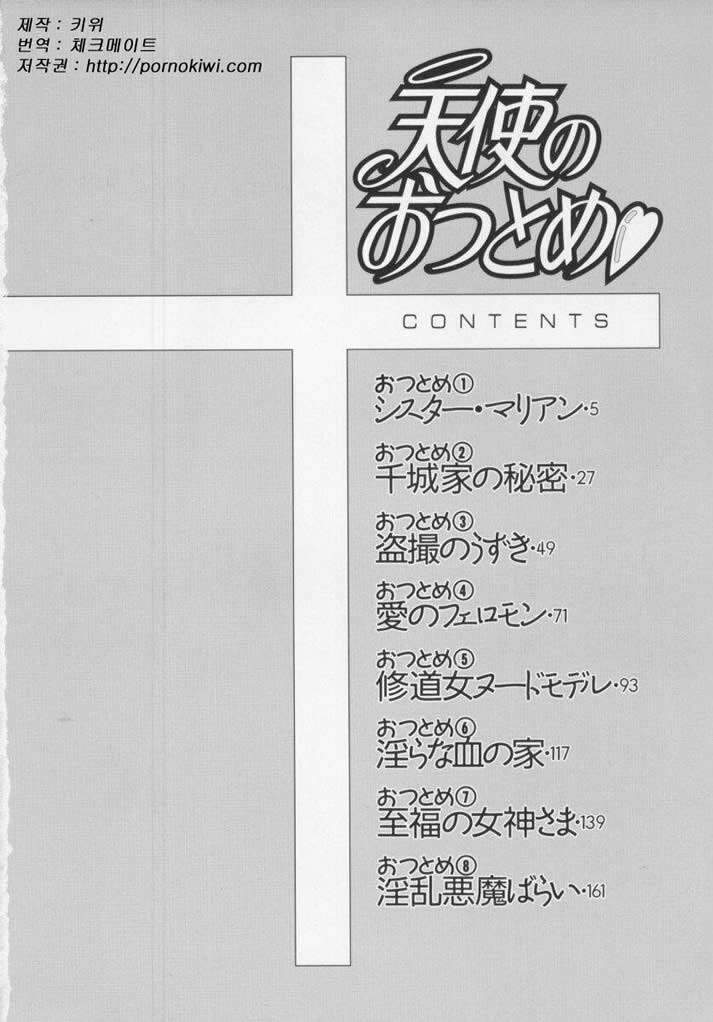 제작 : 키위
번역 : 체크메이트
저작권 : http://pornokiwi.com
天使の
おつとめ
CONTENTS
おつとめ①
シスター・マリアン・5
おつとめ②
千城家の秘密・27
おつとめ③
盗撮のうずき・49
おつとめ④
愛のフェロモン・71
おつとめ⑤
修道女ヌードモデル・93
おつとめ⑥
淫らな血の家・117
おつとめ⑦
至福の女神さま・139
おつとめ⑧
淫乱悪魔ばらい・161